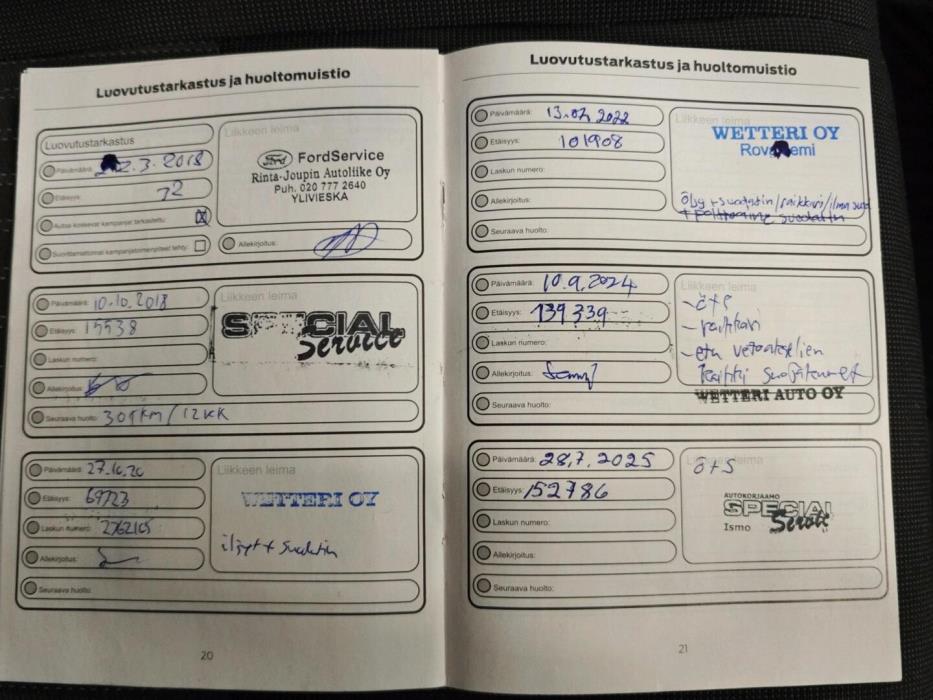 Luovutustarkastus ja huoltomuistio
Luovutustarkastus
Päivämäärä: 2.3.2018
Etäisyys: 72
Autoa koskevat kampanjat tarkastettu: X
Suorittamattomat kampanjatoimenpiteet tehty:
Liikkeen leima
Ford FordService
Rinta-Joupin Autoliike Oy
Puh. 020 777 2640
YLIVIESKA
Allekirjoitus:
Päivämäärä: 10.10.2018
Etäisyys: 15538
Laskun numero:
Allekirjoitus:
Seuraava huolto: 30tkm/12kk
Liikkeen leima
SPECIAL
Service
Päivämäärä: 27.10.20
Etäisyys: 69723
Laskun numero:
Allekirjoitus:
Seuraava huolto:
Liikkeen leima
WETTERI OY
öljyt + suodatin
20
Luovutustarkastus ja huoltomuistio
Päivämäärä: 13.02.2022
Etäisyys: 101908
Laskun numero:
Allekirjoitus:
Seuraava huolto:
Liikkeen leima
WETTERI OY
öljy + suodatin/raikkari/ilman suod
+ polttoaine suodatin
Päivämäärä: 10.9.2024
Etäisyys: 139339
Laskun numero:
Allekirjoitus:
Seuraava huolto:
Liikkeen leima
- ö+s
- raikkari
- etu vetoakselien
WETTERI AUTO OY
Päivämäärä: 28.7.2025
Etäisyys: 152786
Laskun numero:
Allekirjoitus:
Seuraava huolto:
Liikkeen leima
ö+s
AUTOKORJAAMO
SPECIAL
Ismo Service
21